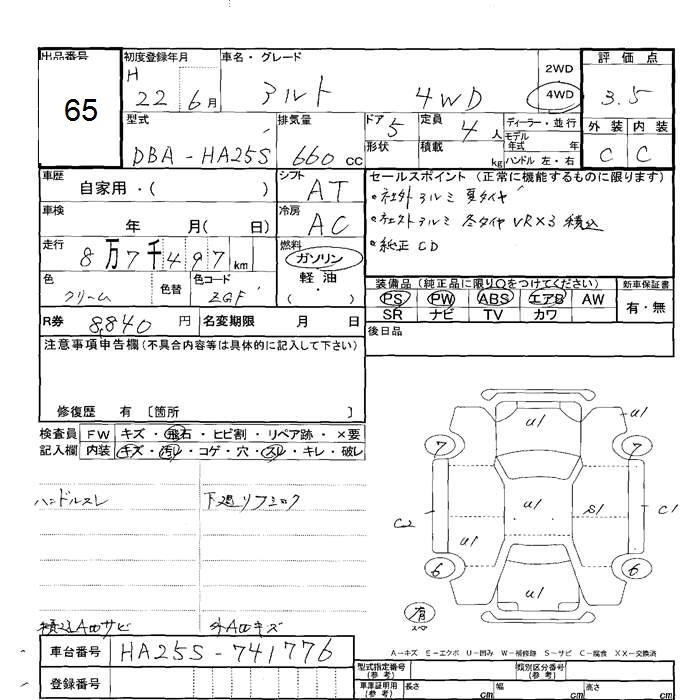 出品番号 初度登録年月 車名・グレード 評価点
65
H 22 6月 アルト 4WD 2WD 4WD 3.5
型式 排気量 ドア 5 定員 4人 ディーラー・並行 外装 内装
DBA-HA25S 660cc 形状 積載 kg モデル年式 年 ハンドル 左・右 C C
車歴 シフト セールスポイント (正常に機能するものに限ります)
自家用・( ) AT ・社外アルミ 夏タイヤ
車検 冷房 ・社外アルミ 冬タイヤ VR×3 積込
年 月( 日) AC ・純正CD
走行 8万7千497km 燃料 ガソリン・軽油・( )
色 クリーム 色替 色コード ZGF
装備品(純正品に限り○をつけてください) 新車保証書
PS PW ABS エアB AW 有・無
SR ナビ TV カワ
R券 8,840円 名変期限 月 日 後日品
注意事項申告欄(不具合内容等は具体的に記入して下さい)
修復歴 有 〔箇所 〕
検査員 FW キズ・飛石・ヒビ割・リペア跡・×要
記入欄 内装 キズ・汚レ・コゲ・穴・スレ・キレ・破レ
ハンドルスレ
u1 u1
7 7
u1 S1
C2 C1
u1
6 6
u1
有
スペア
A-キズ E-エクボ U-凹み W-補修跡 S-サビ C-腐食 XX-交換済
車台番号 HA25S-741776
登録番号
型式指定番号(参考) 類別区分番号(参考)
車庫証明用(参考) 長さ cm 幅 cm 高さ cm